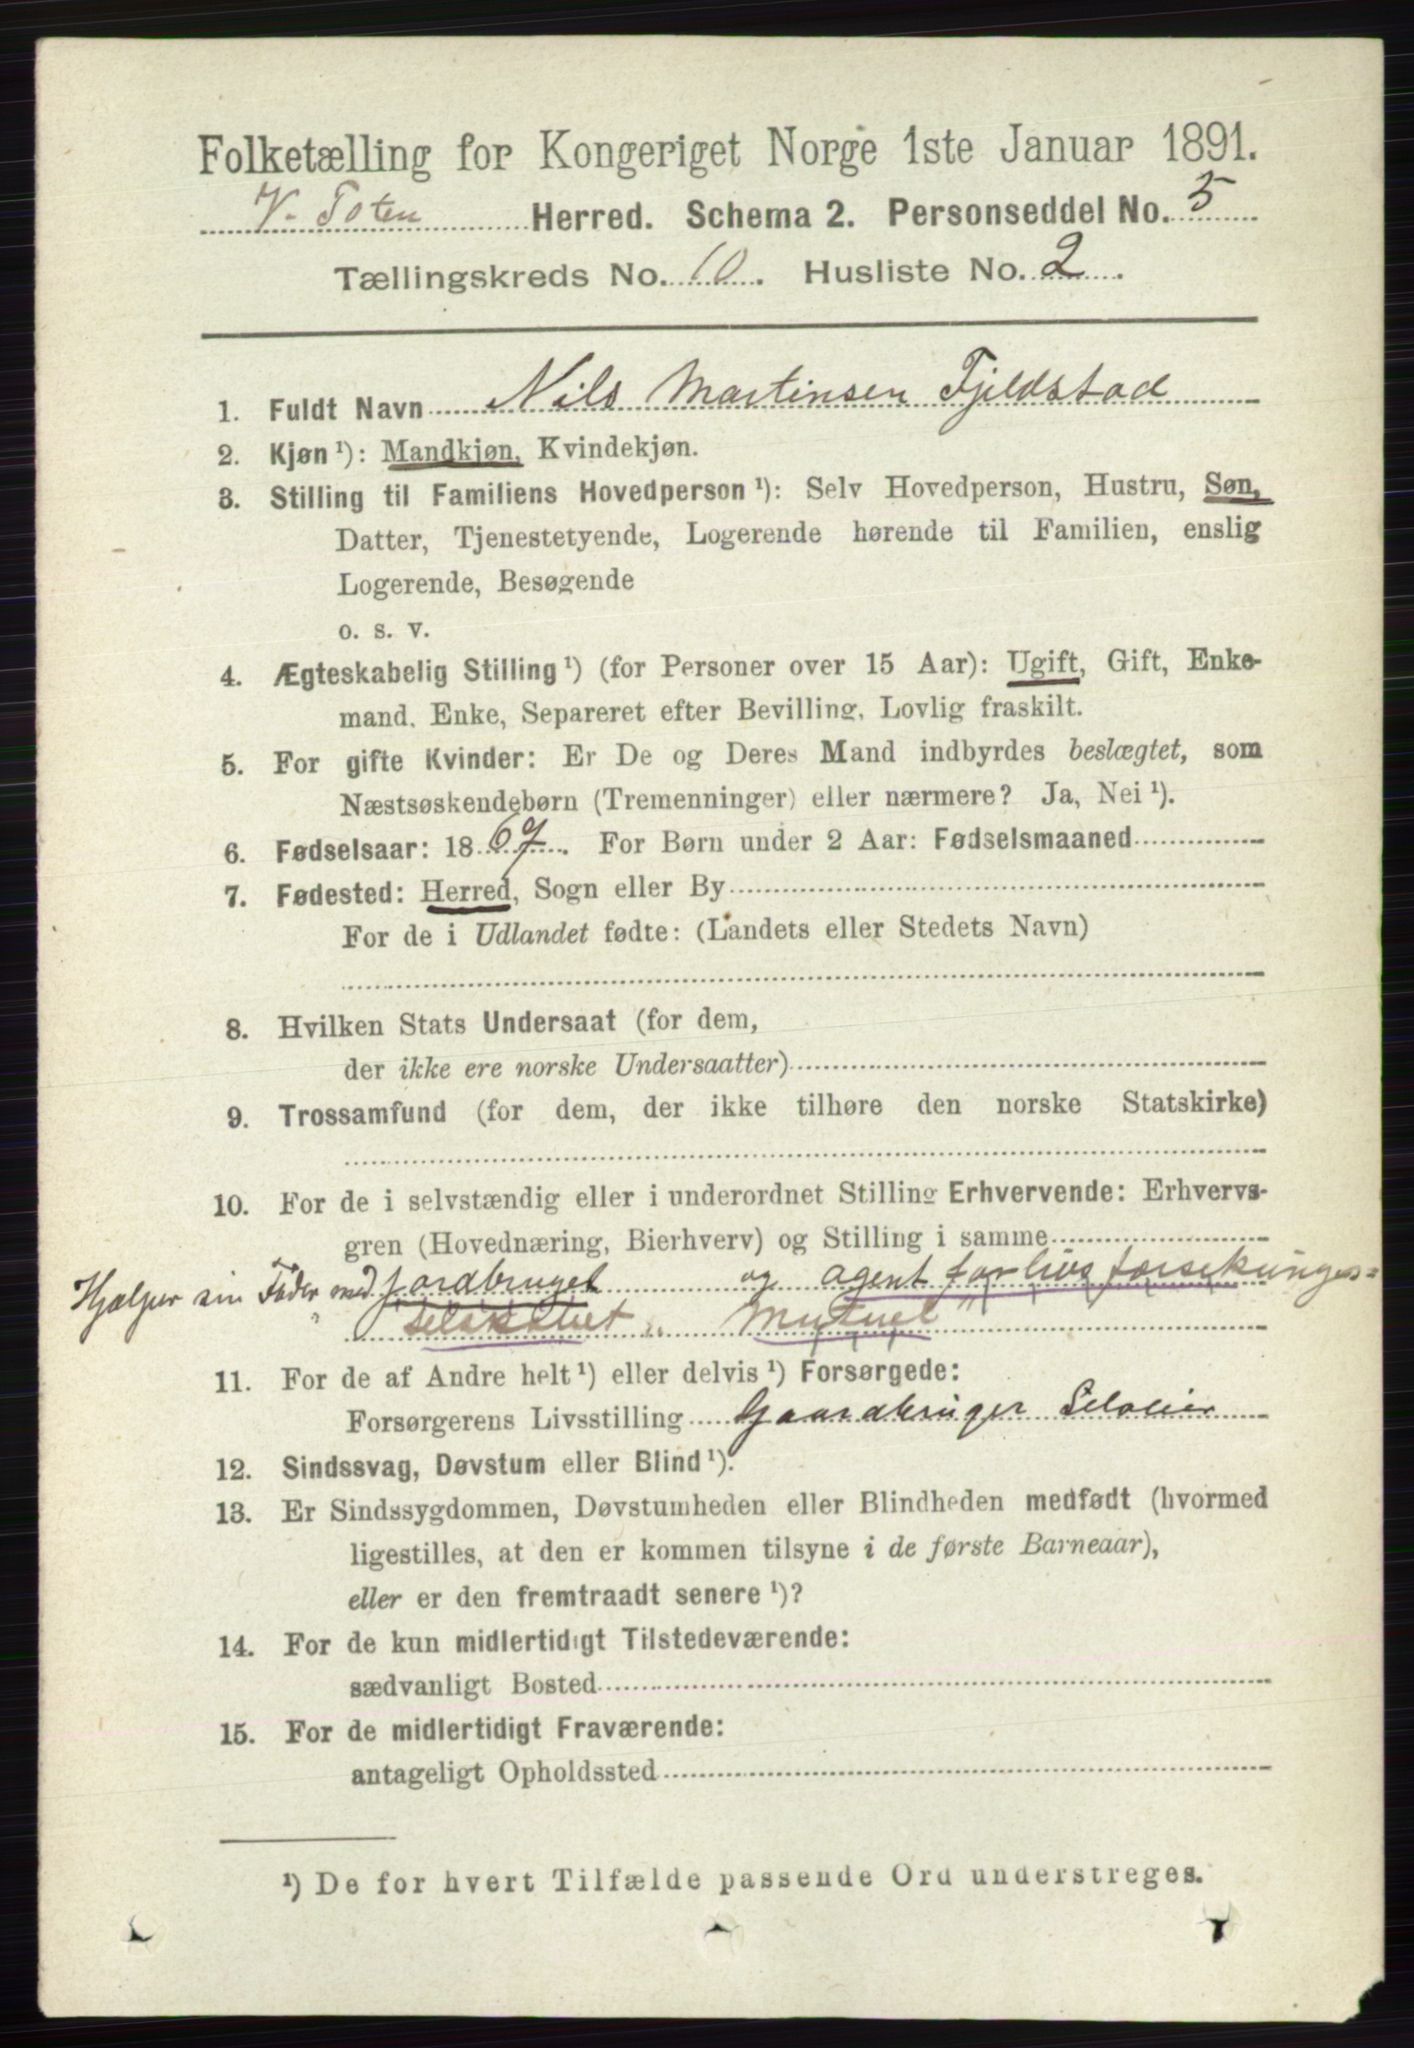 Folketælling for Kongeriget Norge 1ste Januar 1891.
V. Toten Herred. Schema 2. Personseddel No. 5
Tællingskreds No. 10. Husliste No. 2.
1. Fuldt Navn Nils Martinsen Fjeldstad
2. Kjøn ¹): Mandkjøn, Kvindekjøn.
3. Stilling til Familiens Hovedperson ¹): Selv Hovedperson, Hustru, Søn,
Datter, Tjenestetyende, Logerende hørende til Familien, enslig
Logerende, Besøgende
o. s. v.
4. Ægteskabelig Stilling ¹) (for Personer over 15 Aar): Ugift, Gift, Enke-
mand, Enke, Separeret efter Bevilling, Lovlig fraskilt.
5. For gifte Kvinder: Er De og Deres Mand indbyrdes beslægtet, som
Næstsøskendebørn (Tremenninger) eller nærmere? Ja, Nei ¹).
6. Fødselsaar: 1867. For Børn under 2 Aar: Fødselsmaaned
7. Fødested: Herred, Sogn eller By
For de i Udlandet fødte: (Landets eller Stedets Navn)
8. Hvilken Stats Undersaat (for dem,
der ikke ere norske Undersaatter)
9. Trossamfund (for dem, der ikke tilhøre den norske Statskirke)
10. For de i selvstændig eller i underordnet Stilling Erhvervende: Erhvervs-
gren (Hovednæring, Bierhverv) og Stilling i samme
Hjælper sin Fader med jordbruget og agent for livsforsikrings=
selskabet „Mutuel"
11. For de af Andre helt ¹) eller delvis ¹) Forsørgede:
Forsørgerens Livsstilling Gaardbruger Seloeier
12. Sindssvag, Døvstum eller Blind ¹).
13. Er Sindssygdommen, Døvstumheden eller Blindheden medfødt (hvormed
ligestilles, at den er kommen tilsyne i de første Barneaar),
eller er den fremtraadt senere ¹)?
14. For de kun midlertidigt Tilstedeværende:
sædvanligt Bosted
15. For de midlertidigt Fraværende:
antageligt Opholdssted
¹) De for hvert Tilfælde passende Ord understreges.